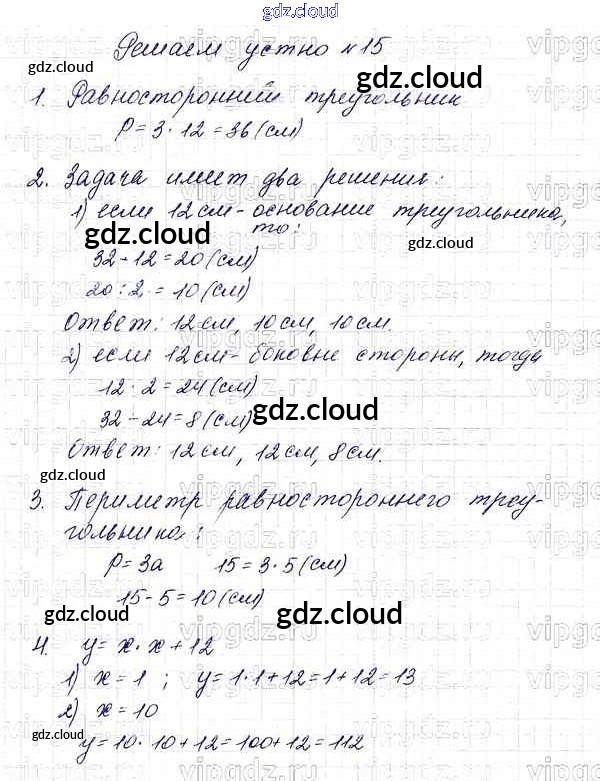 gdz.cloud
Решаем устно №15
gdz.cloud
gdz.cloud
1. Равносторонний треугольник
P = 3 · 12 = 36 (см)
2. Задача имеет два решения:
1) если 12 см - основание треугольника,
то:
gdz.cloud
gdz.cloud
32 - 12 = 20 (см)
20 : 2 = 10 (см)
Ответ: 12 см, 10 см, 10 см.
2) если 12 см - боковые стороны, тогда
12 · 2 = 24 (см)
32 - 24 = 8 (см)
gdz.cloud
Ответ: 12 см, 12 см, 8 см.
gdz.cloud
3. Периметр равностороннего треу-
гольника:
P = 3a 15 = 3 · 5 (см)
15 - 5 = 10 (см)
gdz.cloud
gdz.cloud
4. y = x · x + 12
1) x = 1 ; y = 1 · 1 + 12 = 1 + 12 = 13
2) x = 10
gdz.cloud
gdz.cloud
y = 10 · 10 + 12 = 100 + 12 = 112